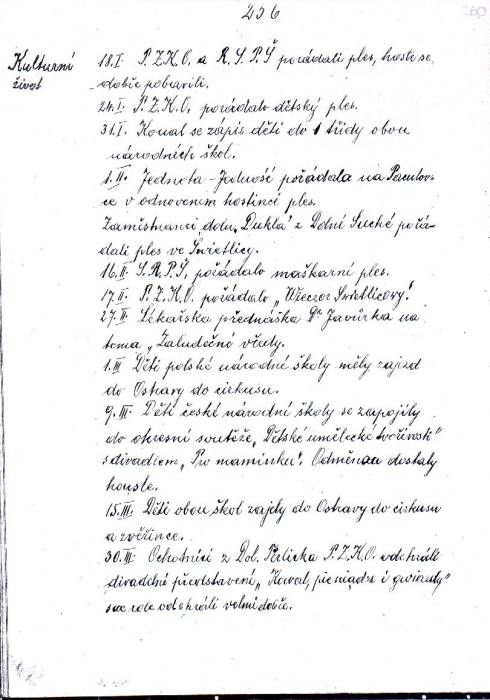 256
260
Kulturní
život
18.I. P.Z.K.O. a R.S.P.Š pořádali ples, hosté se
dobře pobavili.
24.I. P.Z.K.O. pořádalo dětský ples.
31.I. Konal se zápis dětí do 1 třídy obou
národních škol.
1.II. Jednota-Jedność pořádala na Pacalov-
ce v odnoveném hostinci ples.
Zaměstnanci dolu "Dukla" z Dolní Suché pořá-
dali ples ve Świetlicy.
16.II. S.R.P.Š, pořádalo maškarní ples.
17.II. P.Z.K.O. pořádalo "Wieczor Świetlicovy".
27.II Lékařska přednáška Dr Javůrka na
tema "Žaludečné vředy.
1.III Děti polské národní školy měly zajezd
do Ostravy do cirkusu.
9.III. Děti české národní školy se zapojily
do okresní soutěže "Dětské umělecké tvořivosti"
s divadlem "Pro maminku". Odměnau dostaly
housle.
15.III. Děti obou škol zajely do Ostravy do cirkusu
a zvěřince.
30.III. Ochotnici z Dol. Těrlicka P.Z.K.O. odehráli
divadelné představení "Kowal, pieniądze i gwiazdy"
sve role odehráli velmi dobře.